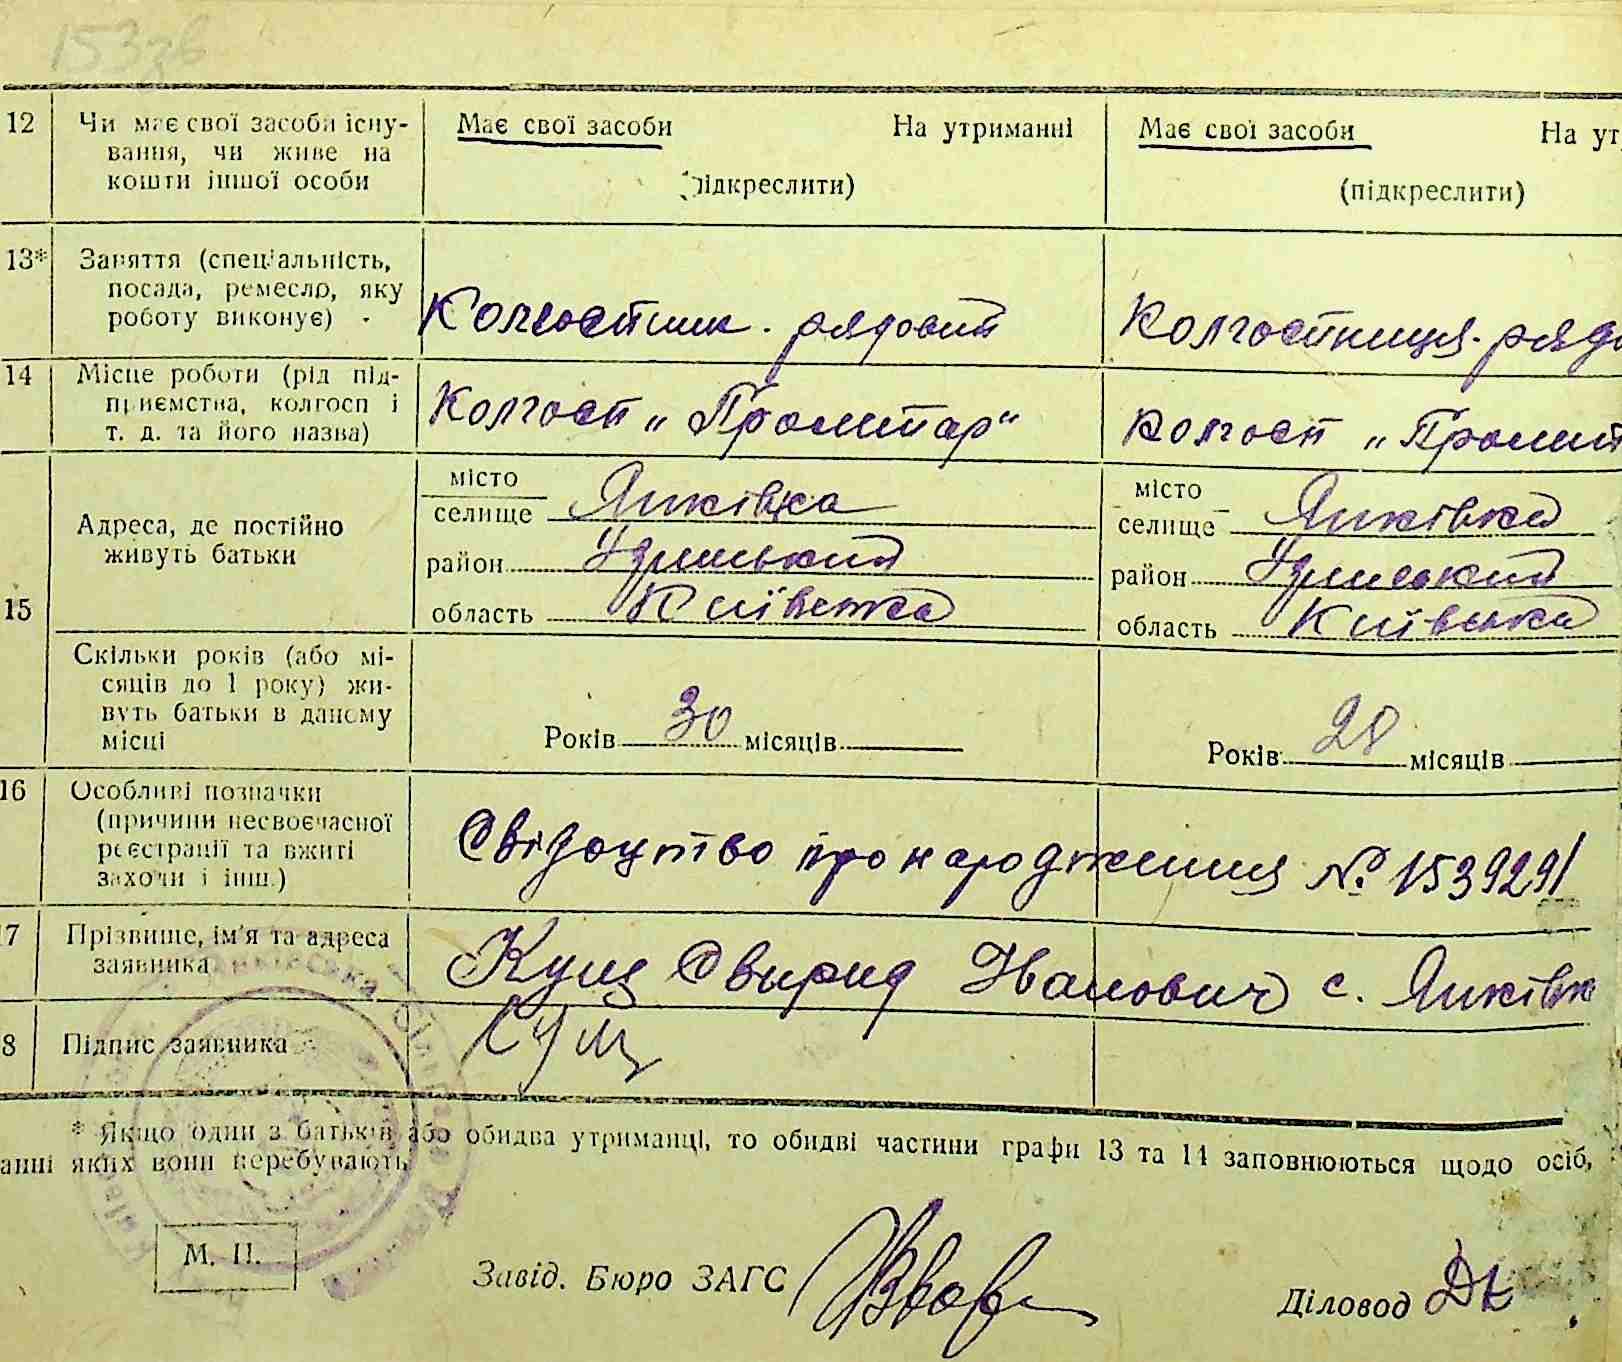 12 Чи має свої засоби існу-
вання, чи живе на
кошти іншої особи
Має свої засоби На утриманні
(підкреслити)
Має свої засоби На ут
(підкреслити)
13* Заняття (спеціальність,
посада, ремесло, яку
роботу виконує) -
Колгоспник. рядовий
Колгоспниця. рядо
14 Місце роботи (рід під-
приємства, колгосп і
т. д. та його назва)
Колгосп „Пролитар"
Колгосп „Пролит
15 Адреса, де постійно
живуть батьки
місто
селище Янківка
район
область Київська
місто
селище Янківка
район
область Київська
Скільки років (або мі-
сяців до 1 року) жи-
вуть батьки в даному
місці
Років 30 місяців
Років 28 місяців
16 Особливі позначки
(причини несвоєчасної
реєстрації та вжиті
заходи і інш.)
Свідоцтво про народження № 1539291
17 Прізвище, ім'я та адреса
заявника
Кущ Свирид Іванович с. Янківк
8 Підпис заявника
Кущ
* Якщо один з батьків або обидва утриманці, то обидві частини графи 13 та 14 заповнюються щодо осіб,
анні яких вони перебувають
М. П.
Завід. Бюро ЗАГС
Діловод